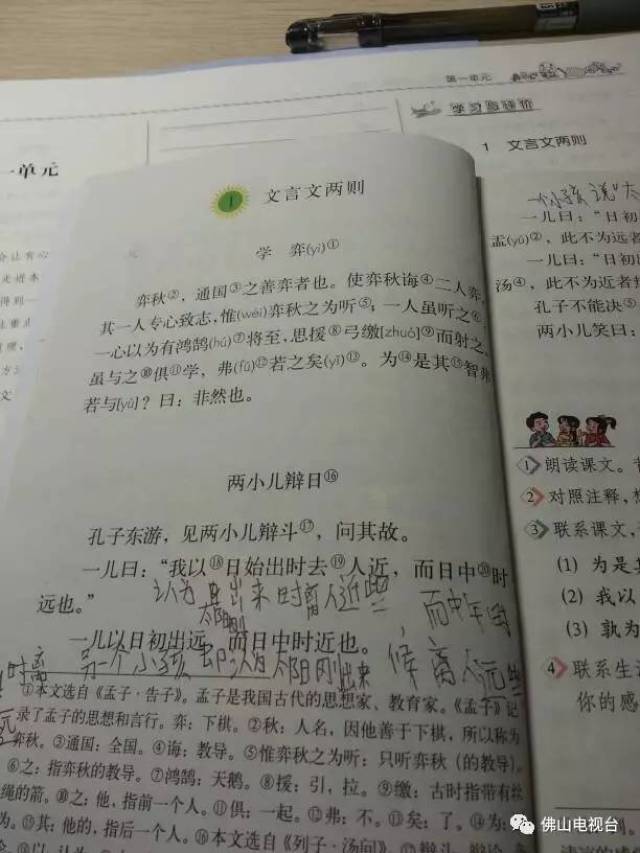 第一单元
一单元
学习与评价
1 文言文两则
1
文言文两则
学 弈(yì)①
弈秋②，通国③之善弈者也。使弈秋诲④二人弈，
其一人专心致志，惟(wéi)弈秋之为听⑤；一人虽听之⑥，
一心以为有鸿鹄(hú)⑦将至，思援⑧弓缴[zhuó]⑨而射之。
虽与之⑩俱⑪学，弗(fú)⑫若之矣(yǐ)⑬。为⑭是其⑮智弗
若与[yú]？曰：非然也。
两小儿辩日⑯
孔子东游，见两小儿辩斗⑰，问其故。
一儿曰：“我以⑱日始出时去⑲人近，而日中⑳时
远也。”
认为 太阳刚出来时离人近些 而中午时
一儿以日初出远，而日中时近也。
时离 另一个小孩却认为太阳刚出来 候离人远些
①本文选自《孟子·告子》。孟子是我国古代的思想家、教育家。《孟子》记
录了孟子的思想和言行。弈：下棋。②秋：人名，因他善于下棋，所以称为
弈秋。③通国：全国。④诲：教导。⑤惟弈秋之为听：只听弈秋（的教导）。
⑥之：指弈秋的教导。⑦鸿鹄：天鹅。⑧援：引，拉。⑨缴：古时指带有丝
绳的箭。⑩之：他，指前一个人。⑪俱：一起。⑫弗：不。⑬矣：了。⑭为：
为。⑮其：他的，指后一个人。⑯本文选自《列子·汤问》。⑰辩斗：辩论
一个小孩说“太
一儿曰：“日初
盂(yú)②，此不为远者
一儿曰：“日初
汤④，此不为近者
孔子不能决⑤
两小儿笑曰：
1 朗读课文。背
2 对照注释，想
3 联系课文，
(1) 为是其
(2) 我以
(3) 孰为
4 联系生活
你的感
佛山电视台